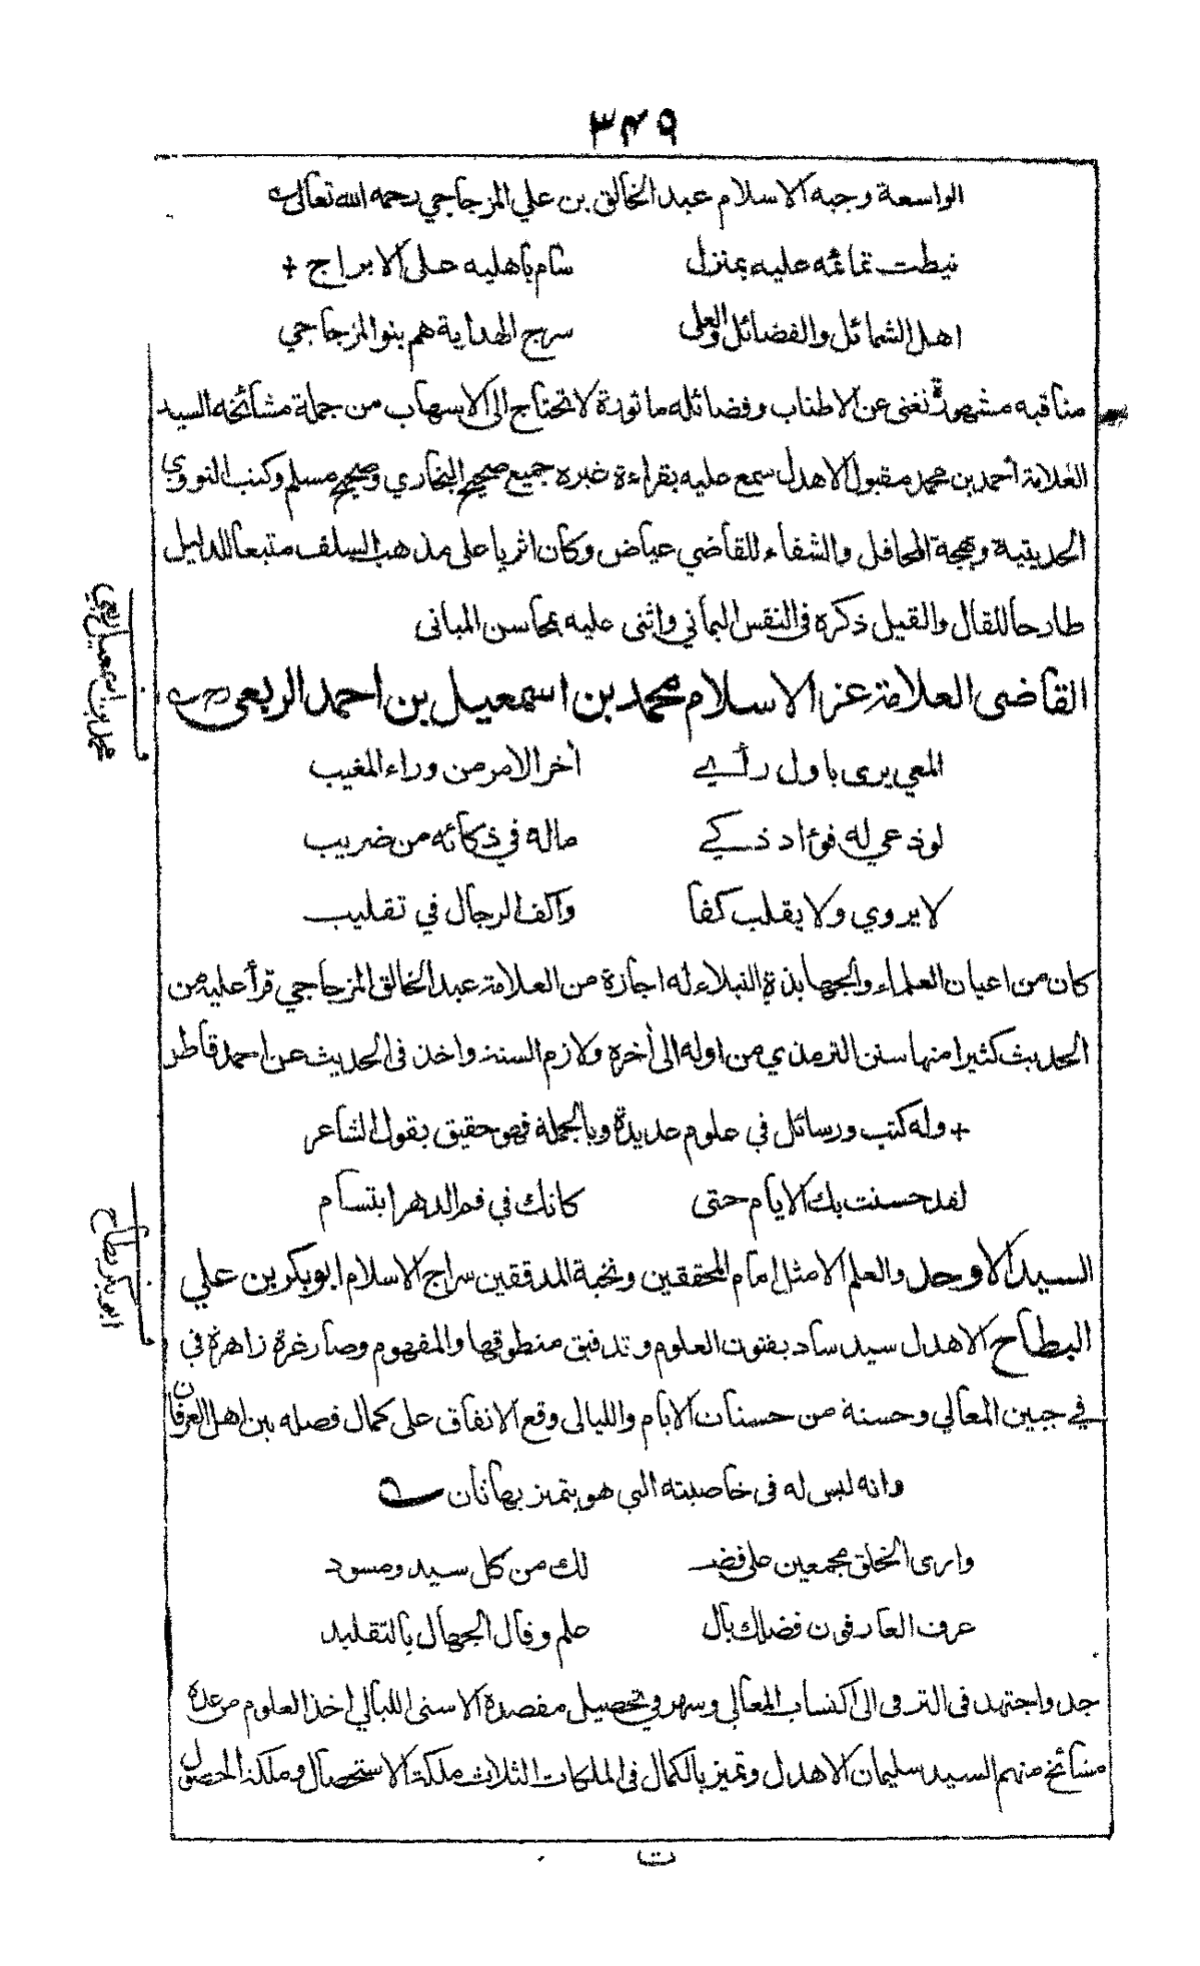 ٣٤٩
الواسعة وجيه الاسلام عبد الخالق بن علي المزجاجي رحمه الله تعالى
نيطت تمائمه عليه بمنزل سام باهليه على الابراج +
اهل الشمائل والفضائل والعلى سرج الهداية هم بنو المزجاجي
مناقبه مشهورة تغنى عن الاطناب وفضائله ماثورة لا تحتاج الى الاسهاب من جملة مشائخه السيد
العلامة أحمد بن محمد مقبول الاهدل سمع عليه بقراءة غيره جميع صحيح البخاري وصحيح مسلم وكتب النووي
الحديثية وبهجة المحافل والشفاء للقاضي عياض وكان اثريا على مذهب السلف متبعا للدليل
طارحا للقال والقيل ذكره فى النفس اليماني واثنى عليه بمحاسن المبانى
القاضى العلامة عز الاسلام محمد بن اسمعيل بن احمد الربعى رح
محمد بن اسمعيل الربعي
المعي يرى باول رأي أخر الامر من وراء المغيب
لوذعي له فؤاد ذكي ماله في ذكائه من ضريب
لا يروي ولا يقلب كفا واكف الرجال في تقليب
كان من اعيان العلماء والجهابذة النبلاء له اجازة من العلامة عبد الخالق المزجاجي قرأ عليه من
الحديث كثيرا منها سنن الترمذي من اوله الى أخره ولازم السنة واخذ فى الحديث عن احمد قاطن
+ وله كتب ورسائل في علوم عديدة وبالجملة فهو حقيق بقول الشاعر
لقد حسنت بك الايام حتى كانك في فم الدهر ابتسام
السيد الاوحد والعلم الامثل امام المحققين ونخبة المدققين سراج الاسلام ابو بكر بن علي
ابو بكر بطاح
البطاح الاهدل سيد ساد بفنون العلوم وتدقيق منطوقها والمفهوم وصار غرة زاهرة في
في جبين المعالي وحسنة من حسنات الايام والليالى وقع الاتفاق على كمال فضله بين اهل العرفان
وانه ليس له فى خاصيته التي هو يتميز بها ثان
وارى الخلق مجمعين على فضـ لك من كل سيد ومسود
عرف العارفون فضلك بال علم وقال الجهال بالتقليد
جد واجتهد فى الترقى الى اكتساب المعالي وسهر في تحصيل مقصده الاسنى الليالي اخذ العلوم من عدة
مشائخ منهم السيد سليمان الاهدل وتميز بالكمال فى الملكات الثلاث ملكة الاستحصال وملكة الحصول